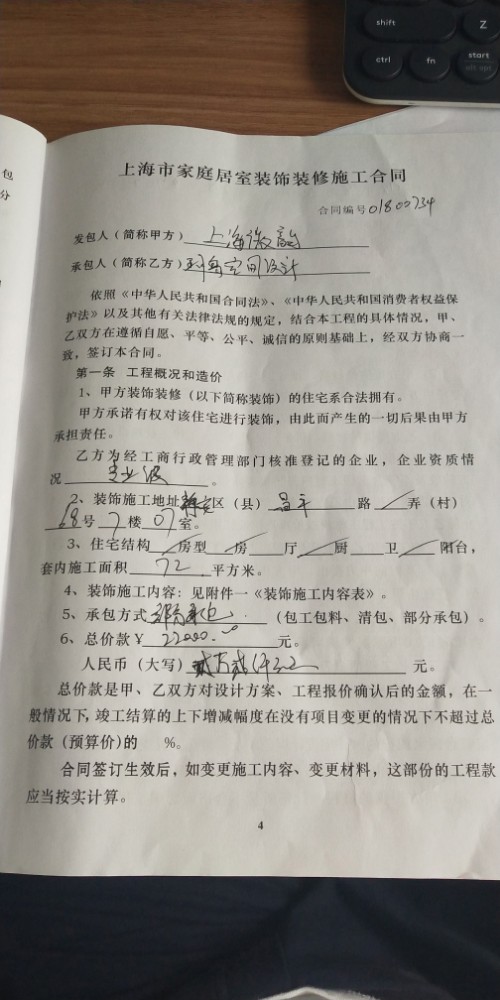 shift
Z
ctrl
fn
start
包
分
上海市家庭居室装饰装修施工合同
合同编号01800734
发包人（简称甲方）上海
承包人（简称乙方）空间设计
依照《中华人民共和国合同法》、《中华人民共和国消费者权益保
护法》以及其他有关法律法规的规定，结合本工程的具体情况，甲、
乙双方在遵循自愿、平等、公平、诚信的原则基础上，经双方协商一
致，签订本合同。
第一条 工程概况和造价
1、甲方装饰装修（以下简称装饰）的住宅系合法拥有。
甲方承诺有权对该住宅进行装饰，由此而产生的一切后果由甲方
承担责任。
乙方为经工商行政管理部门核准登记的企业，企业资质情
况 专业级 。
2、装饰施工地址静安区（县）昌平 路 弄（村）
68号 7 楼 07 室。
3、住宅结构 房型 房 厅 厨 卫 阳台，
套内施工面积 72 平方米。
4、装饰施工内容：见附件一《装饰施工内容表》。
5、承包方式 部分承包 （包工包料、清包、部分承包）。
6、总价款￥ 22000.00 元。
人民币（大写） 贰万贰仟 元。
总价款是甲、乙双方对设计方案、工程报价确认后的金额，在一
般情况下，竣工结算的上下增减幅度在没有项目变更的情况下不超过总
价款（预算价）的 %。
合同签订生效后，如变更施工内容、变更材料，这部份的工程款
应当按实计算。
4